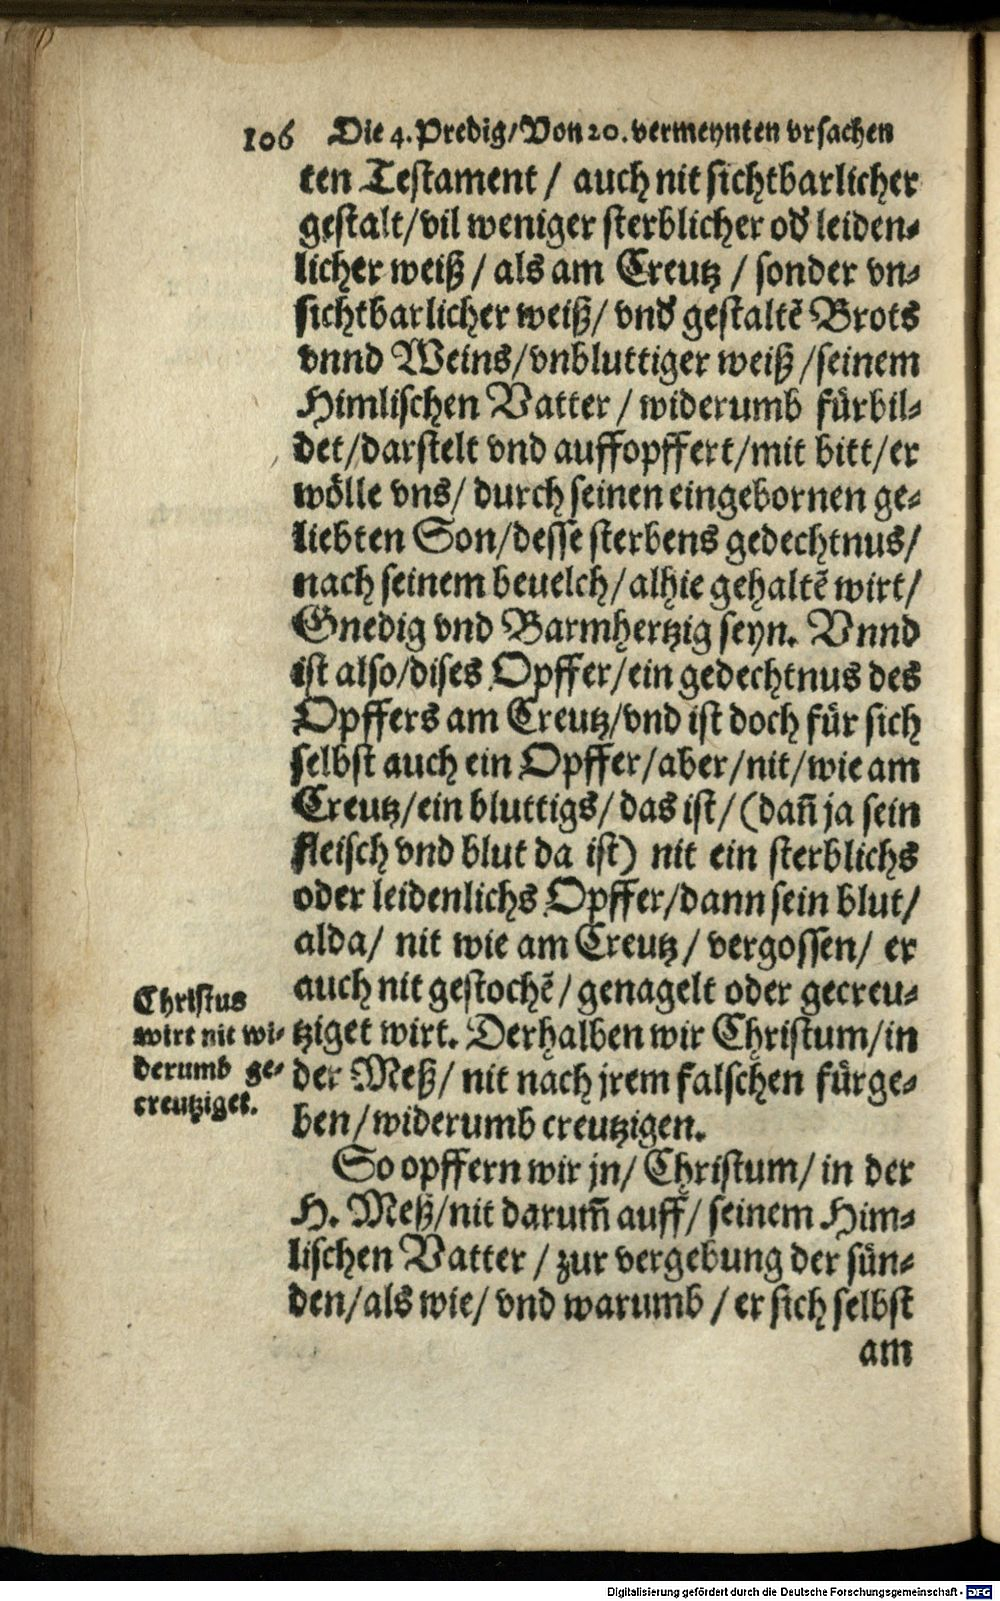 106 Die 4. Predig/Von 20. vermeynten vrsachen
ten Testament / auch nit sichtbarlicher
gestalt/vil weniger sterblicher od' leiden-
licher weiß / als am Creutz / sonder vn-
sichtbarlicher weiß/ vnd' gestaltē Brots
vnnd Weins/vnbluttiger weiß /seinem
Himlischen Vatter / widerumb fürbil-
det/darstelt vnd auffopffert/mit bitt/er
wölle vns/ durch seinen eingebornen ge-
liebten Son/desse sterbens gedechtnus/
nach seinem beuelch/alhie gehaltē wirt/
Gnedig vnd Barmhertzig seyn. Vnnd
ist also/dises Opffer/ein gedechtnus des
Opffers am Creutz/vnd ist doch für sich
selbst auch ein Opffer/aber/nit/wie am
Creutz/ein bluttigs/ das ist/ (dañ ja sein
fleisch vnd blut da ist) nit ein sterblichs
oder leidenlichs Opffer/dann sein blut/
alda/ nit wie am Creutz/ vergossen/ er
auch nit gestochē/ genagelt oder gecreu-
tziget wirt. Derhalben wir Christum/in
der Meß/ nit nach jrem falschen fürge-
ben/widerumb creutzigen.
Christus
wirt nit wi-
derumb ge-
creutziget.
So opffern wir jn/ Christum/ in der
H. Meß/nit darum̃ auff/ seinem Him-
lischen Vatter / zur vergebung der sün-
den/als wie/ vnd warumb / er sich selbst
am
Digitalisierung gefördert durch die Deutsche Forschungsgemeinschaft - DFG